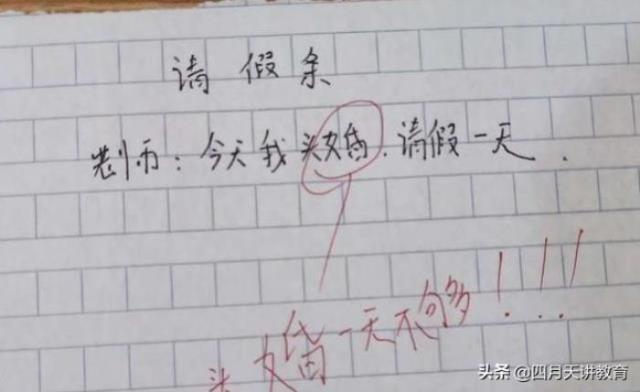 请假条
老师：今天我头婚，请假一天．
头婚一天不够！！！
头条 @四月天讲教育